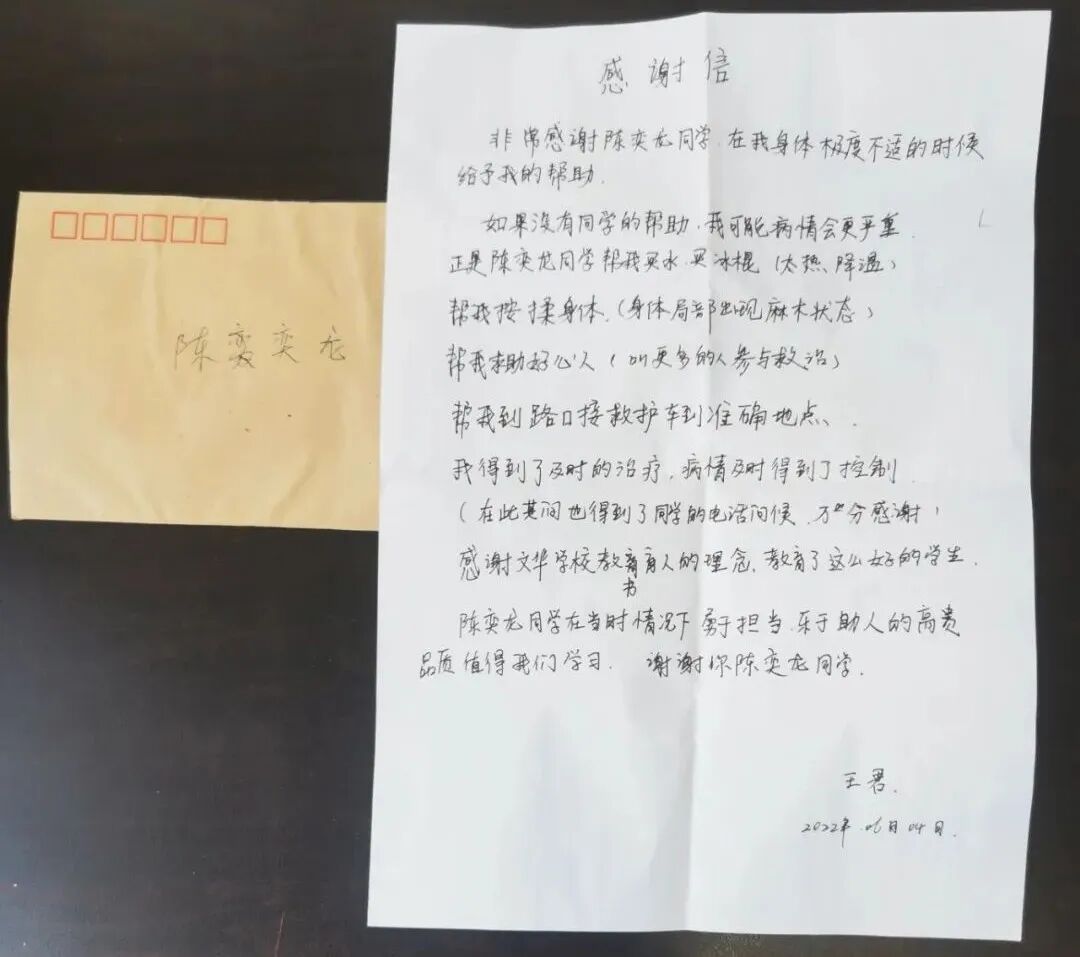 陈奕龙
感谢信
非常感谢陈奕龙同学,在我身体极度不适的时候
给予我的帮助.
如果没有同学的帮助,我可能病情会更严重.
正是陈奕龙同学帮我买水,买冰棍(太热、降温)
帮我按揉身体.(身体局部出现麻木状态)
帮我求助好心人(叫更多的人参与救治)
帮我到路口接救护车到准确地点、.
我得到了及时的治疗,病情及时得到了控制
(在此其间也得到了同学的电话问候,万分感谢)
感谢文华学校教书育人的理念,教育了这么好的学生.
陈奕龙同学在当时情况下勇于担当,乐于助人的高贵
品质值得我们学习. 谢谢你陈奕龙同学.
王君.
2022年.06月04日.